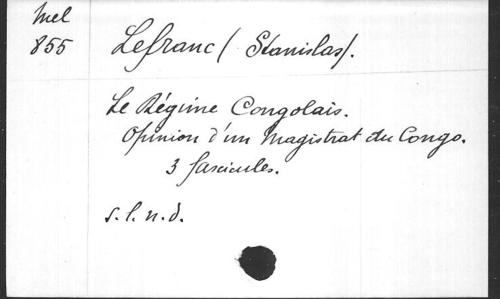 Mel
855
Lefranc (Stanislas).
Le Régime Congolais.
Opinion d'un Magistrat du Congo.
3 fascicules.
s.l.n.d.